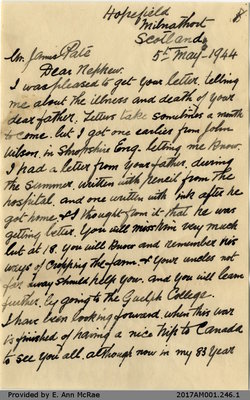 Hopefield
Milnathort
Scotland
5th May 1944
Mr. James Pate
Dear Nephew.
I was pleased to get your letter, telling
me about the illness and death of your
dear father. Letters take sometimes a month
to come. but I got one earlier from John
Wilson, in Shropshire Eng. letting me know.
I had a letter from your father, during
the Summer, written with pencil from the
hospital, and one written with ink after he
got home, & I thought from it that he was
getting better. You will miss him very much
but at 18. you will know and remember his
ways of cropping the farm. & your uncles not
far away should help you. and you will learn
further, by going to the Guelph College.
I have been looking forward, when this war
is finished of having a nice trip to Canada
to see you all, although now in my 83 year
Provided by E. Ann McRae
2017AM001.246.1